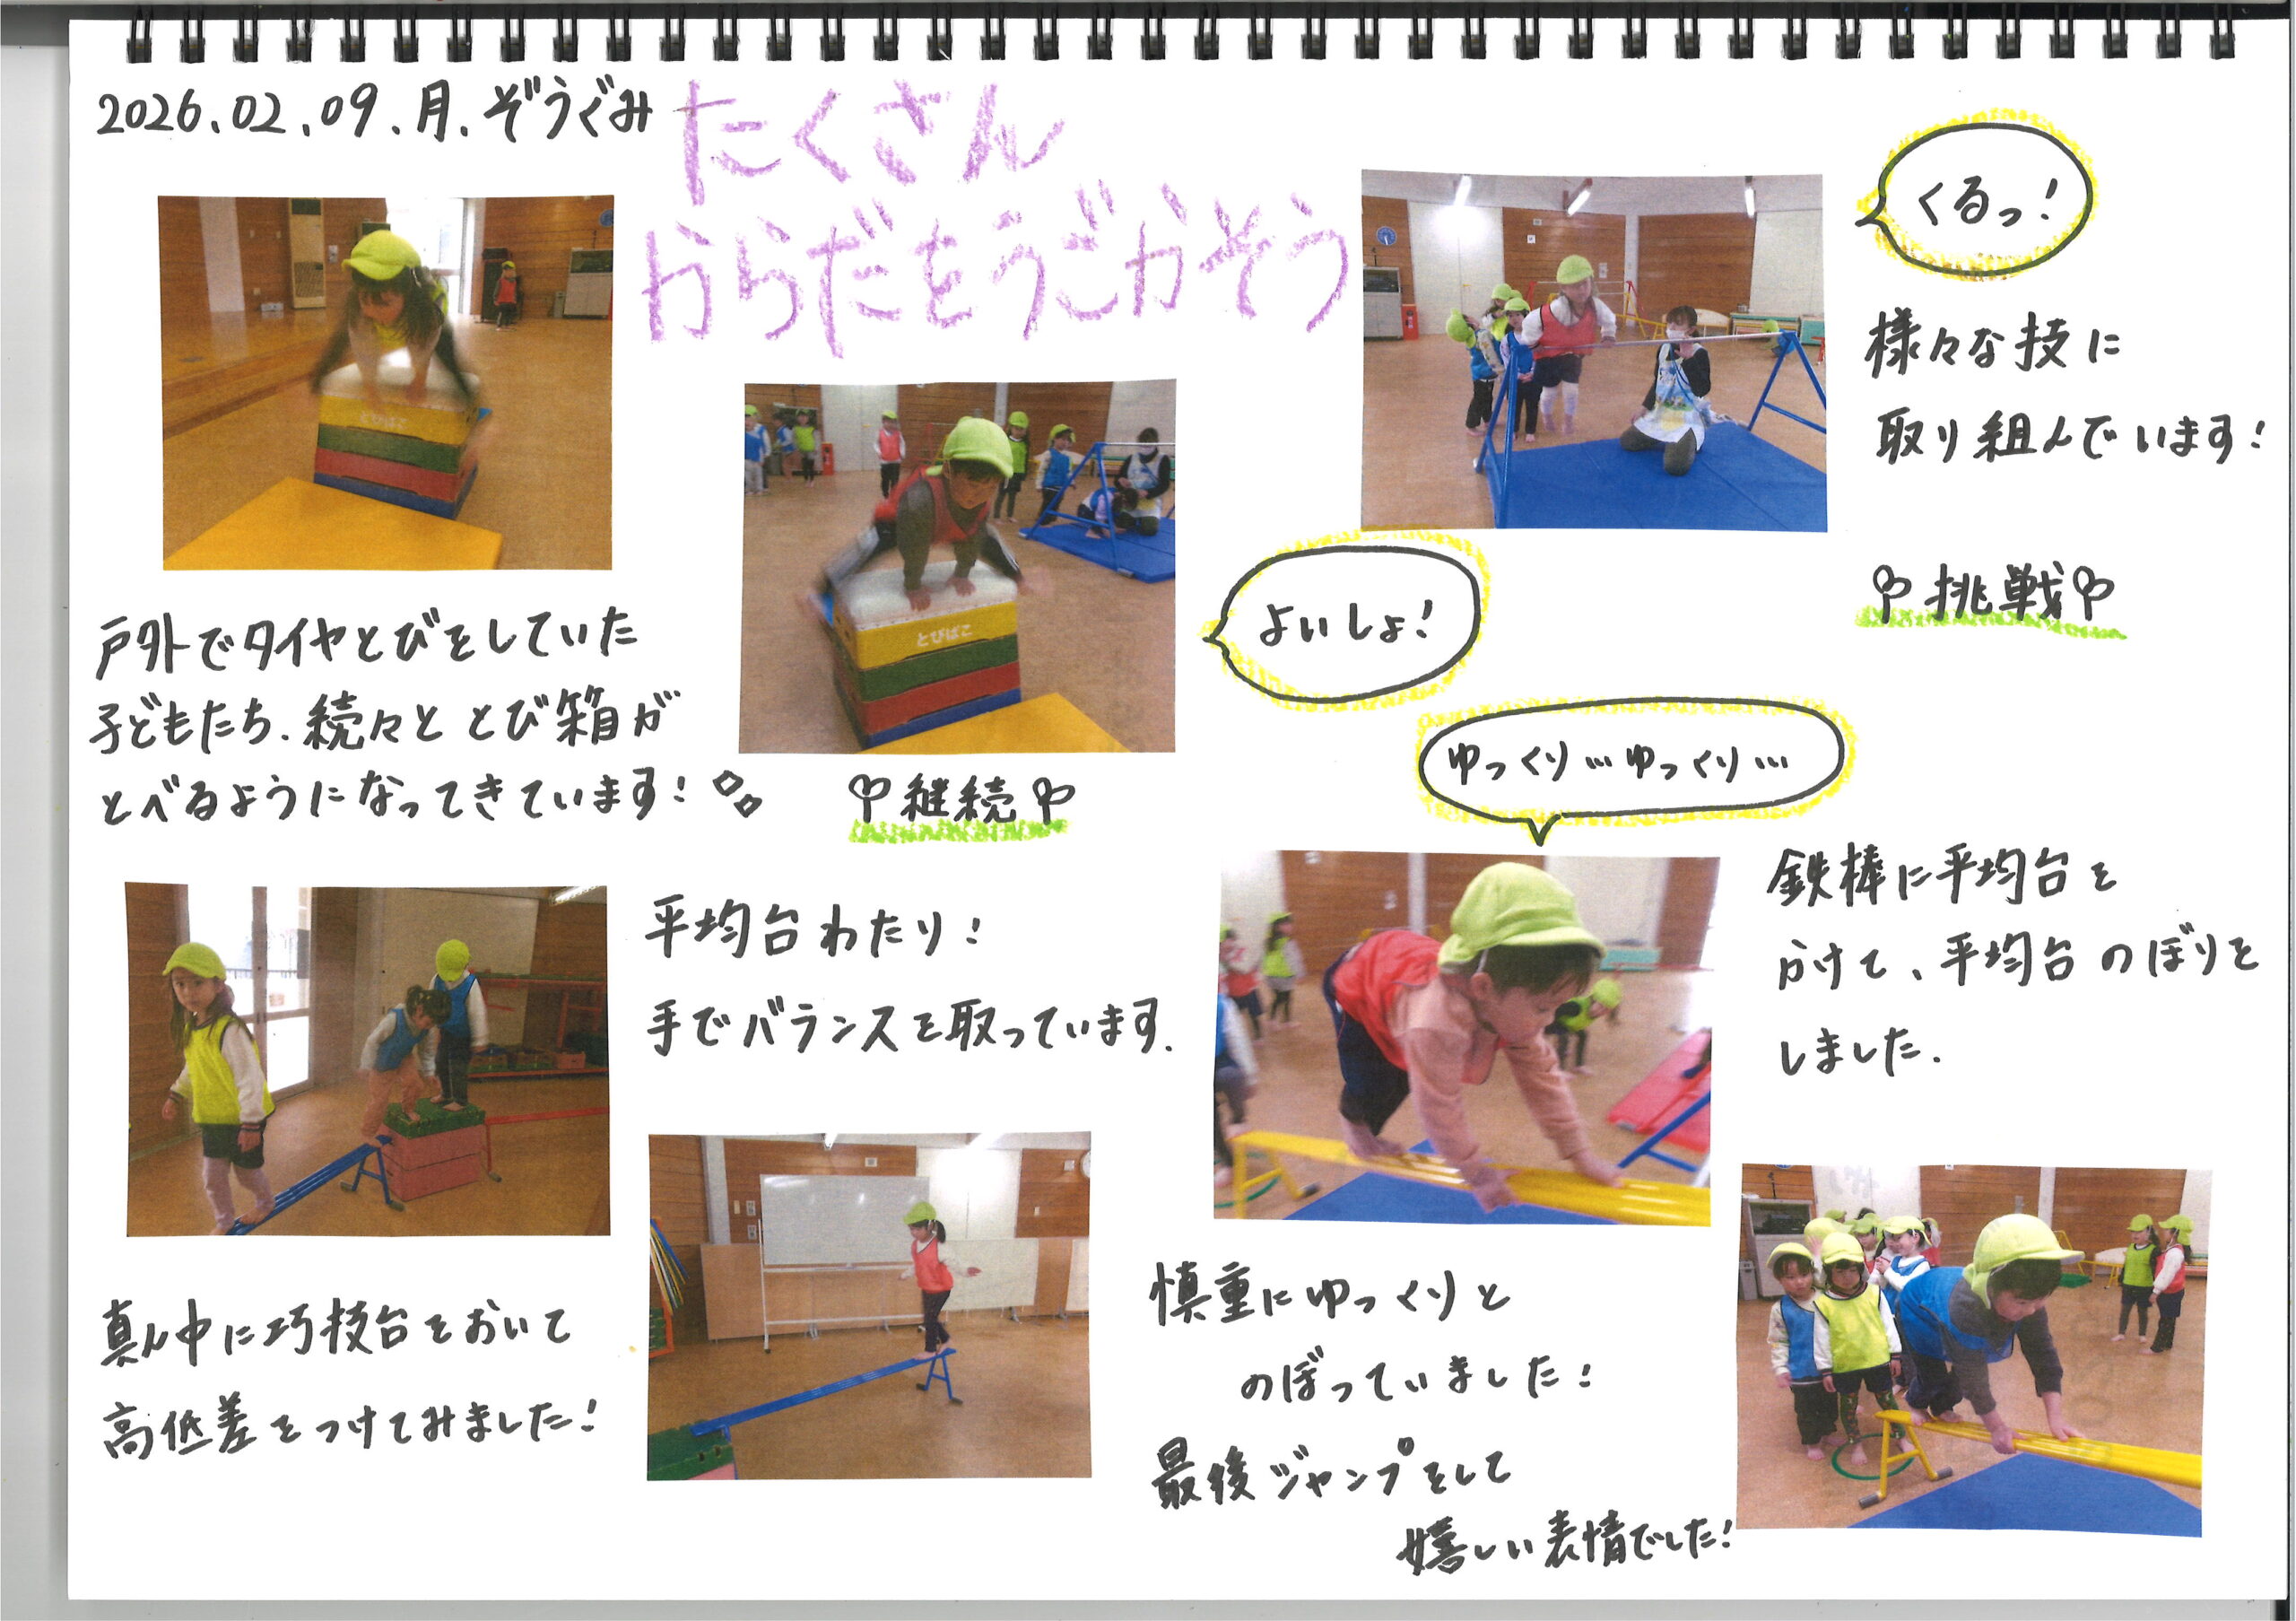 2026.02.09.月.ぞうぐみ
たくさん
からだをうごかそう
とびばこ
戸外でタイヤとびをしていた
子どもたち.続々ととび箱が
とべるようになってきています!
とびばこ
継続
よいしょ!
くるっ!
様々な技に
取り組んでいます!
挑戦
平均台わたり!
手でバランスを取っています.
真ん中に巧技台をおいて
高低差をつけてみました!
ゆっくり…ゆっくり…
鉄棒に平均台を
かけて、平均台のぼりを
しました.
慎重にゆっくりと
のぼっていました!
最後ジャンプをして
嬉しい表情でした!